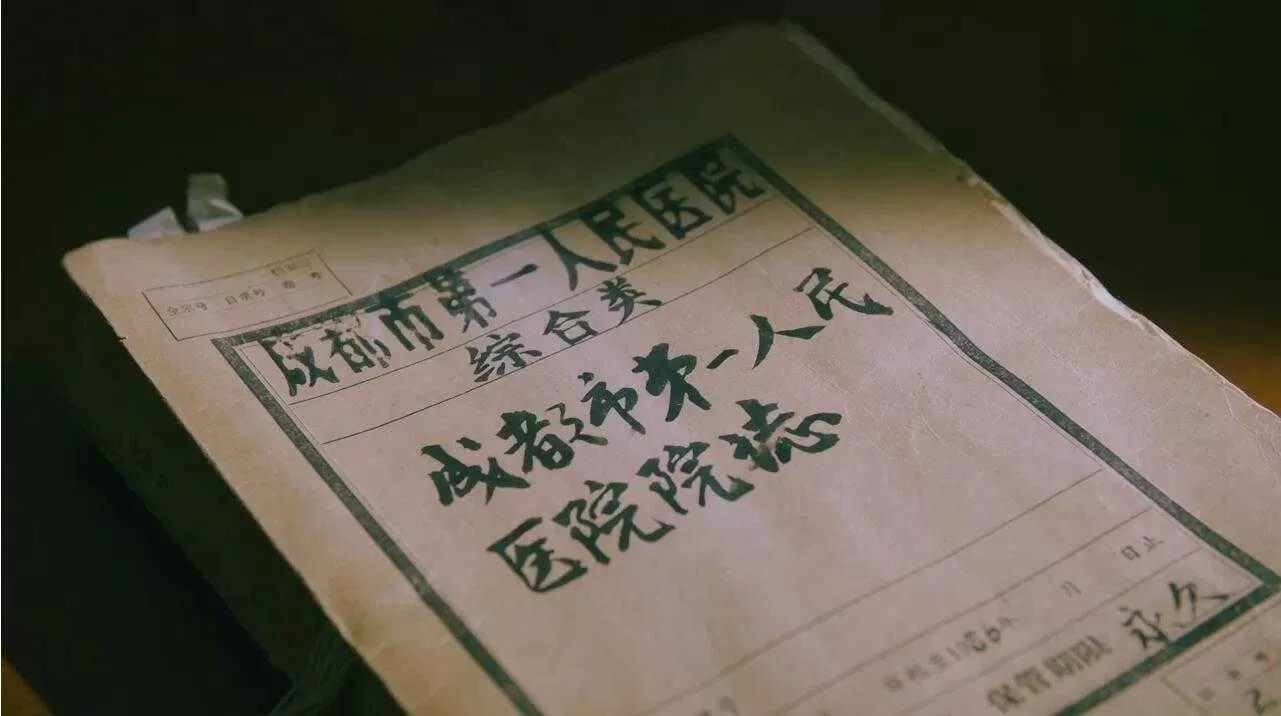 全宗号 目录号 卷号
成都市第一人民医院
综合类
成都市第一人民
医院院誌
1986年 月 日止
保管期限 永久